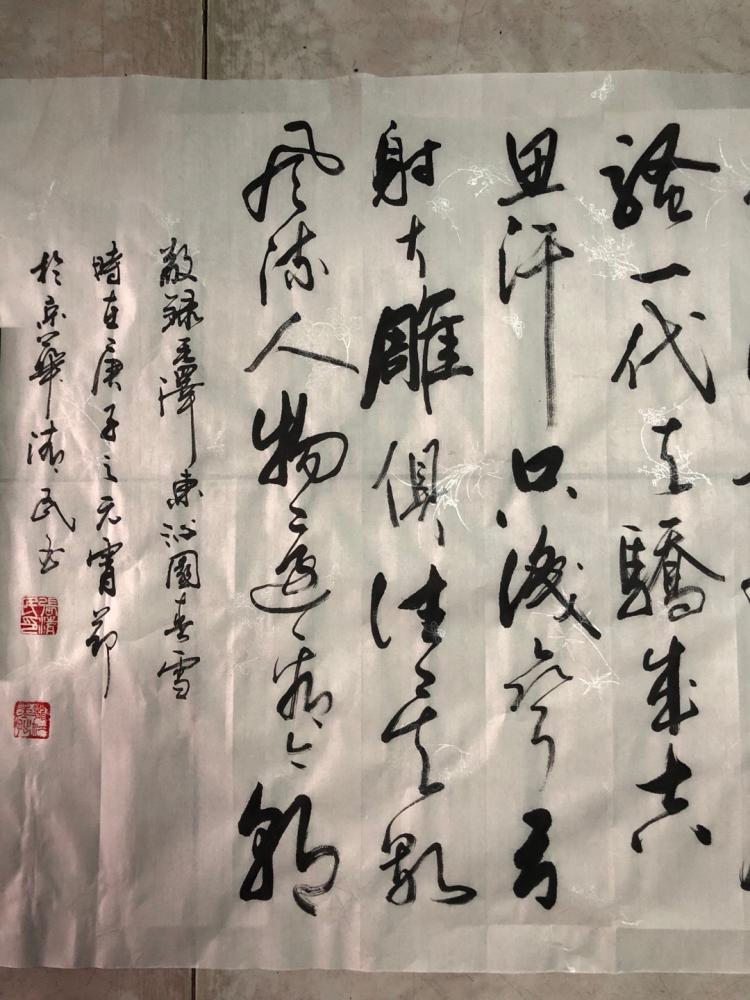 騷一代天驕成吉
思汗只識彎弓
射大雕俱往矣數
风流人物還看今朝
敬録毛澤東沁園春雪
時在庚子之元宵節
於京華清民書
張清民印